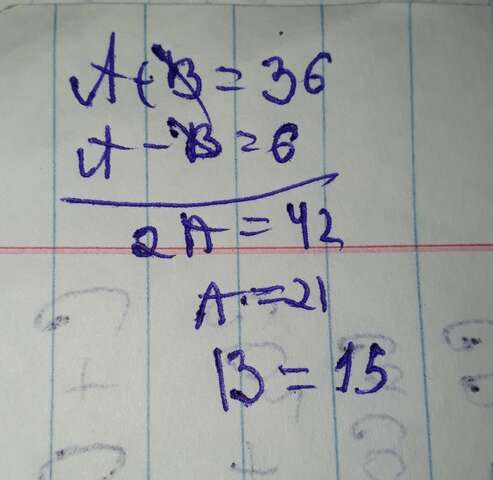 A+B=36
A-B=6
2A=42
A=21
B=15